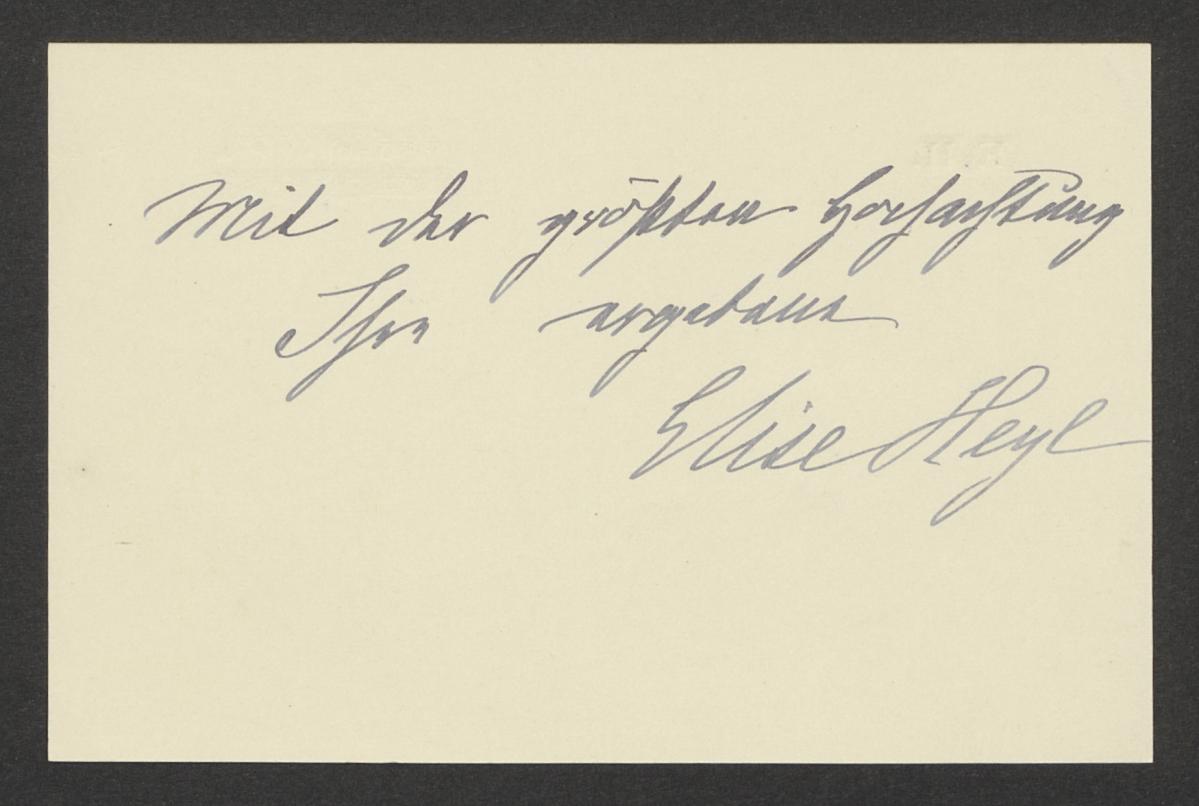 Mit der größten Hochachtung
Ihre ergebene
Elise Heyl